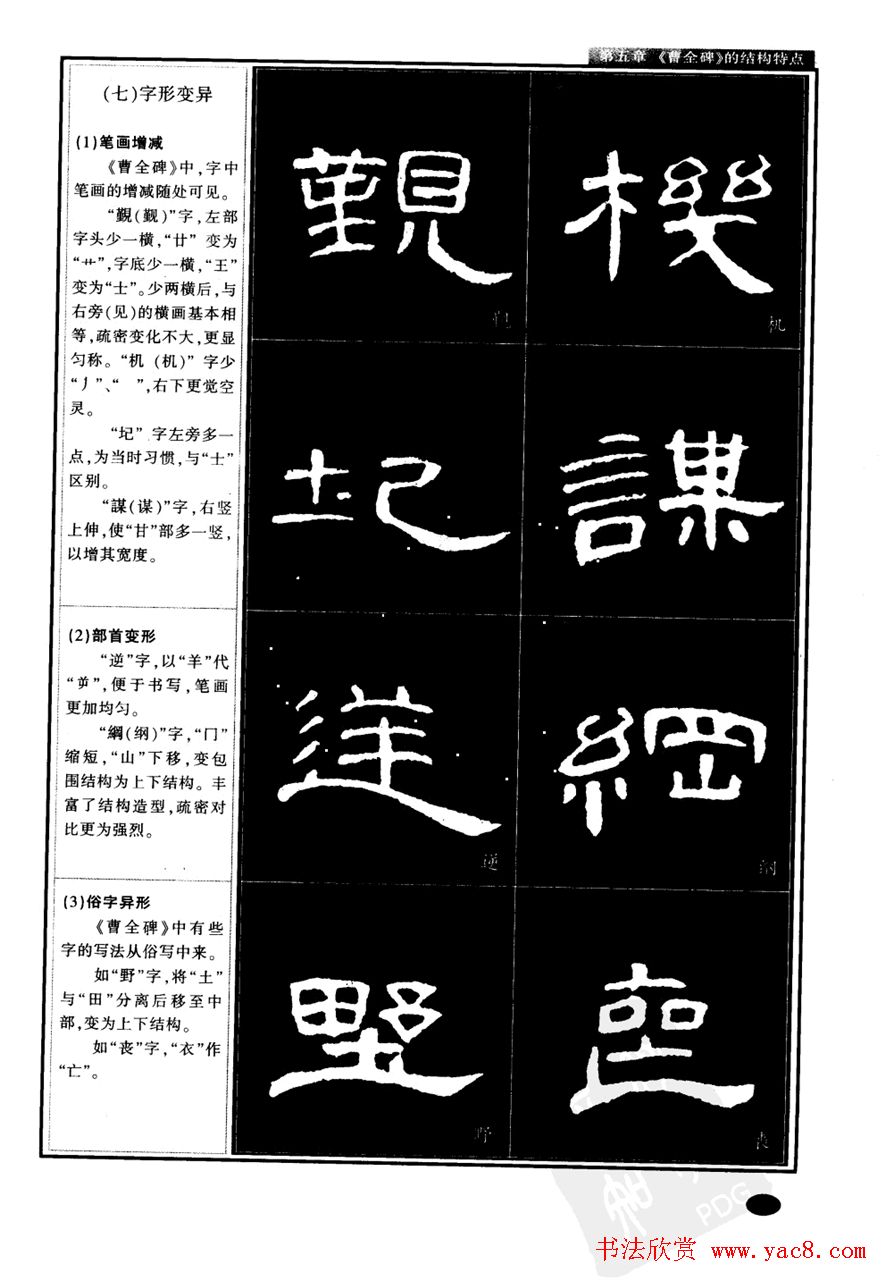 第五章 《曹全碑》的结构特点
(七)字形变异
(1)笔画增减
《曹全碑》中,字中
笔画的增减随处可见。
“覲(觐)”字,左部
字头少一横,“廿”变为
“艹”,字底少一横,“王”
变为“士”。少两横后,与
右旁(见)的横画基本相
等,疏密变化不大,更显
匀称。“机(机)”字少
“丿”、“ ”,右下更觉空
灵。
“圮”字左旁多一
点,为当时习惯,与“士”
区别。
“謀(谋)”字,右竖
上伸,使“甘”部多一竖,
以增其宽度。
(2)部首变形
“逆”字,以“羊”代
“屰”,便于书写,笔画
更加均匀。
“綱(纲)”字,“冂”
缩短,“山”下移,变包
围结构为上下结构。丰
富了结构造型,疏密对
比更为强烈。
(3)俗字异形
《曹全碑》中有些
字的写法从俗写中来。
如“野”字,将“土”
与“田”分离后移至中
部,变为上下结构。
如“丧”字,“衣”作
“亡”。
覲 機
机
圮 謀
逆 綱
逆 纲
野 喪
野 丧
PDG
书法欣赏 www.yac8.com